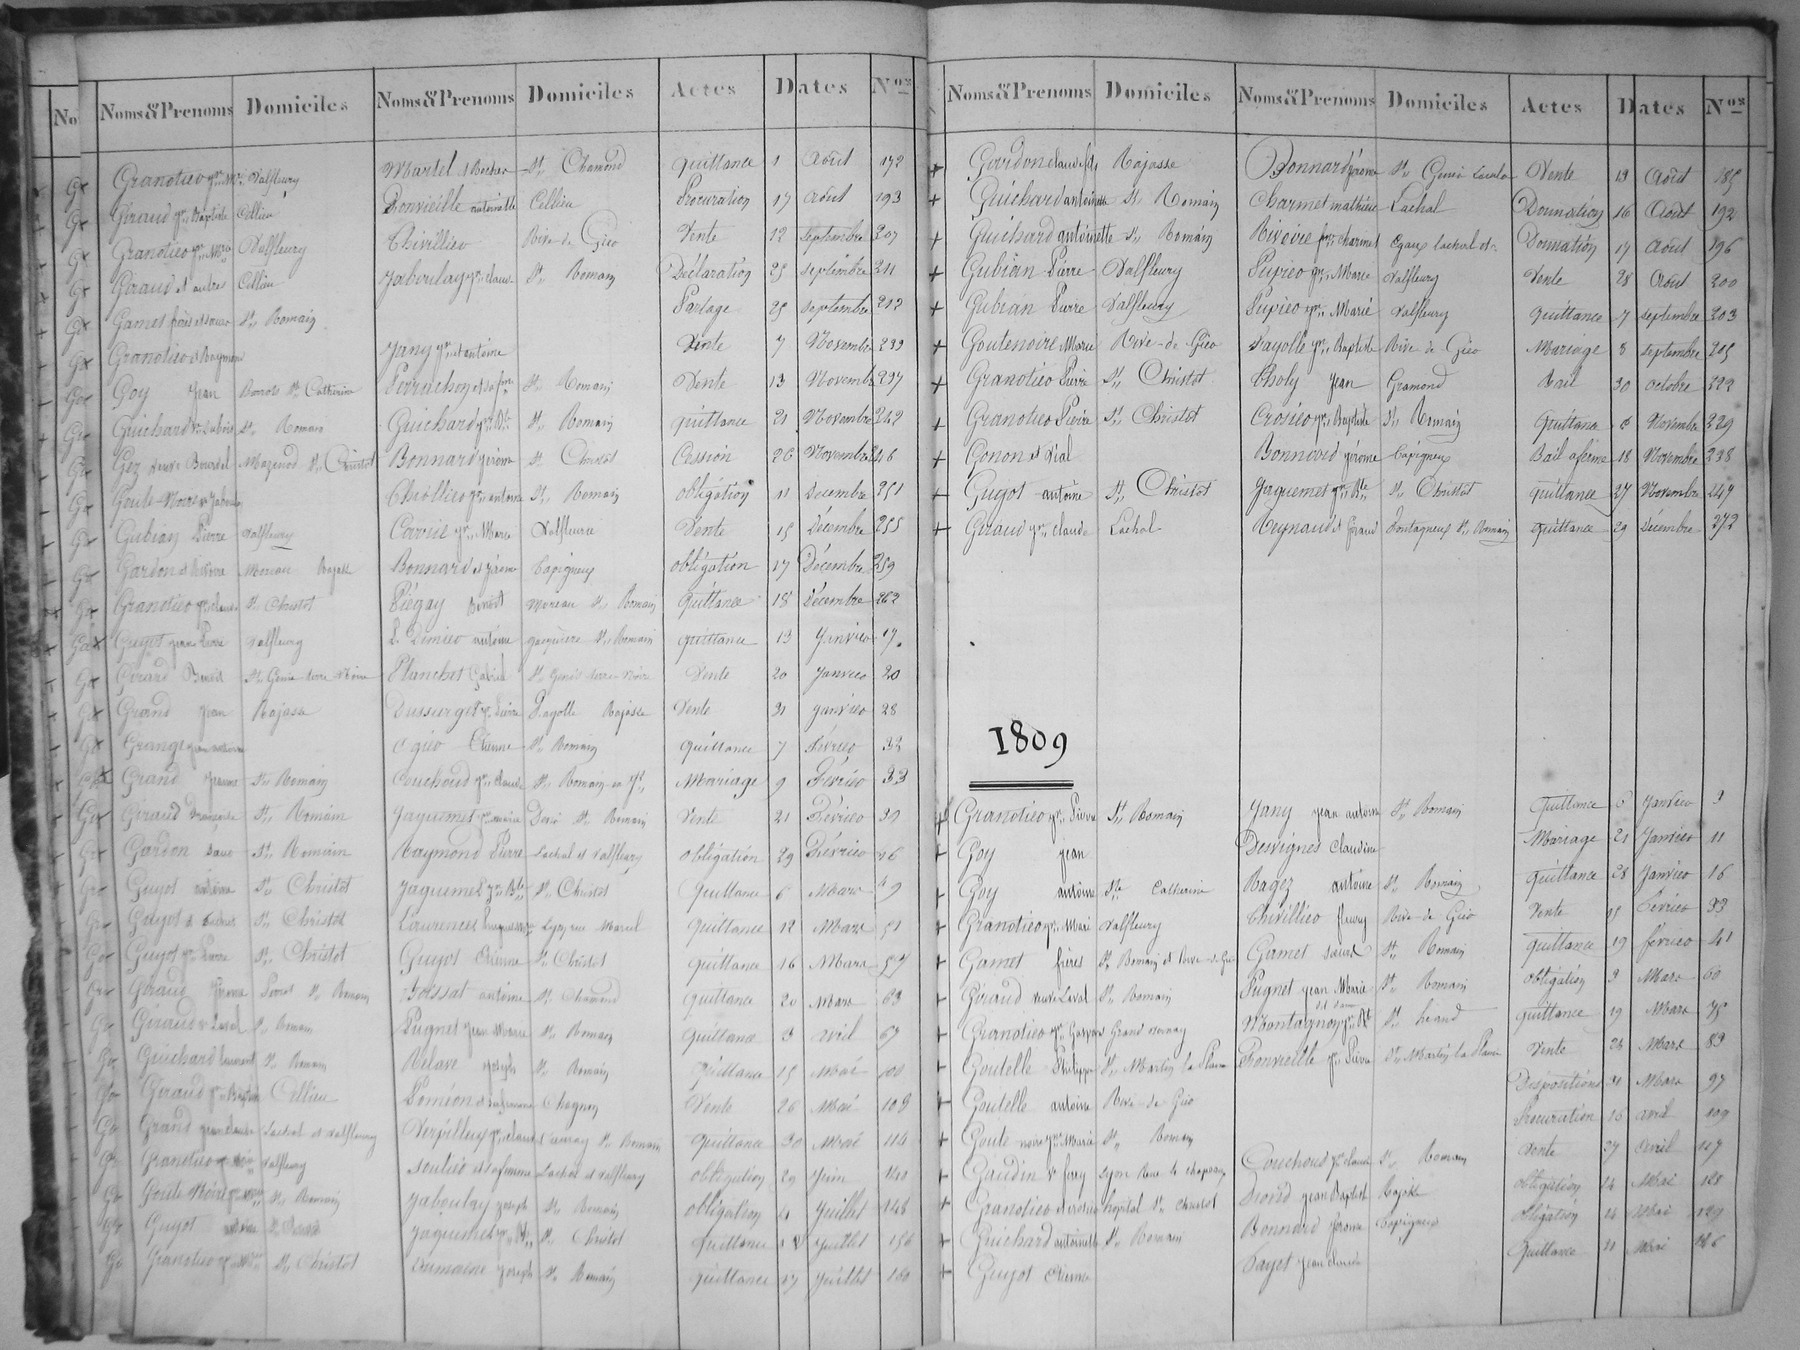 No Noms & Prenoms Domiciles Noms & Prenoms Domiciles Actes Dates Nos
Granotier Valfleury Martel St Chamond quittance 1 Août 172
Giraud jn Baptiste Cellieu Bonvieille antoinette Cellieu Procuration 17 août 193
Granotier Valfleury Chivillier Rive de Gier Vente 12 septembre 207
Giraud et autres Cellieu Jaboulay jn claude St Romain Déclaration 25 septembre 211
Gamet frères et soeur St Romain Partage 25 septembre 212
Granotier et Raymond Jany jn et antoine Vente 7 Novembre 233
Goy jean Ste Catherine Perrachon et sa fme St Romain Vente 13 Novembre 237
Guichard St Romain Guichard St Romain quittance 21 Novembre 242
Gez Mazenod St Christot Bonnard jérôme St Christot Cession 26 Novembre 246
Goute-Noire Chollier jn antoine St Romain obligation 11 Decembre 251
Gubian Pierre Valfleury jn Marie Valfleurie Vente 15 Décembre 255
Gardon et Riviere Moreau Rajasse Bonnard et jérôme Capigneux obligation 17 Décembre 259
Granotier jn claude St Christot Piégay Benoit Moreau St Romain Quittance 18 Décembre 262
Guyot jean Pierre Valfleury antoine St Romain quittance 13 Janvier 17
Girard Benoit St Genis terre Noire Planchet Gabriel St Genis terre-Noire Vente 20 Janvier 20
Grand jean Rajasse Dussurget jn Pierre Fayolle Rajasse Vente 31 janvier 28
Grange Ogier Etienne St Romain quittance 7 février 32
Grand jeanne St Romain Couchoud jn claude St Romain en Jt Mariage 9 Février 33
Giraud françoise St Romain Jaquemet St Romain Vente 21 Février 39
Gardon St Romain Raymond Pierre Lachal et Valfleury obligation 29 Février 46
Guyot antoine St Christot Jaquemet jn Bte St Christot Quittance 6 Mars 49
Guyot St Christot Laurencet Lyon quittance 12 Mars 51
Guyot jn Pierre St Christot Guyot Etienne St Christot quittance 16 Mars 57
Giraud St Romain antoine St Chamond quittance 20 Mars 63
Giraud St Romain Pugnet jean Marie St Romain quittance 3 avril 67
Guichard laurent St Romain Relave joseph St Romain quittance 15 Mai 100
Giraud jn Baptiste Cellieu Poméon Chagnon Vente 26 Mai 109
Grand jean claude Lachal et Valfleury Verpilleux jn claude St Romain quittance 30 Mai 114
Granotier Valfleury Soulier et sa femme Lachal et Valfleury obligation 29 juin 140
Goute Noire St Romain Jaboulay joseph St Romain obligation 4 juillet 148
Guyot antoine Jaquemet jn Bte St Christot quittance 12 juillet 156
Granotier St Christot Dumaine joseph St Romain quittance 17 juillet 160
Noms & Prenoms Domiciles Noms & Prenoms Domiciles Actes Dates Nos
Gourdon claude fils Rajasse Bonnard jérome St Genis Vente 13 Août 185
Guichard antoinette St Romain Charmet mathieu Lachal Dounation 16 Août 192
Guichard antoinette St Romain Riveire fme charmet Lachal Donnation 17 Août 196
Gubian Pierre Valfleury Pupier jn Marie Valfleury Vente 28 Août 200
Gubian Pierre Valfleury Pupier jn Marie Valfleury quittance 7 septembre 203
Goutenoire Marie Rive-de Gier Fayolle jn Baptiste Rive de Gier Mariage 8 septembre 205
Granotier Pierre St Christot Choly jean Gramond Bail 30 octobre 222
Granotier Pierre St Christot Crosier jn Baptiste St Romain quittance 6 Novembre 229
Gonon et Vial Bonnard jérome Capigneux Bail a ferme 18 Novembre 238
Guyot antoine St Christot Jaquemet jn Bte St Christot quittance 27 Novembre 247
Giraud jn claude Lachal Reynaud et Giraud St Romain quittance 29 Décembre 272
1809
Granotier jn Pierre St Romain Jany jean antoine St Romain Quittance 6 Janvier 3
Goy jean Desvignes Claudine Mariage 21 Janvier 11
Goy antoine Ste Catherine Ragez antoine St Romain quittance 28 Janvier 16
Granotier jn Marie Valfleury Chivillier fleury Rive-de Gier Vente 15 Février 33
Gamet frères St Romain et Rive-de-Gier Gamet soeur St Romain quittance 19 février 41
Giraud veuve Laval St Romain Pugnet jean Marie St Romain obligation 3 Mars 60
Granotier jn Gaspard Grand Montagnon jn Bt St héand quittance 19 Mars 75
Goutelle Philippe St Martin la Plaine Bonvieille jn Pierre St Martin la Plaine Vente 26 Mars 89
Goutelle antoine Rive-de Gier Dispositions 31 Mars 97
Goute noire jn Marie St Romain Procuration 16 avril 109
Gaudin Lyon Rue le chapeau Couchoud jn claude St Romain Vente 27 avril 117
Granotier hopital St Christot jean Baptiste Rajasse obligation 14 Mai 128
Guichard antoinette St Romain Bonnard Jerome Capigneux obligation 14 Mai 129
Guyot Etienne Fayet jean claude quittance 21 Mai 136